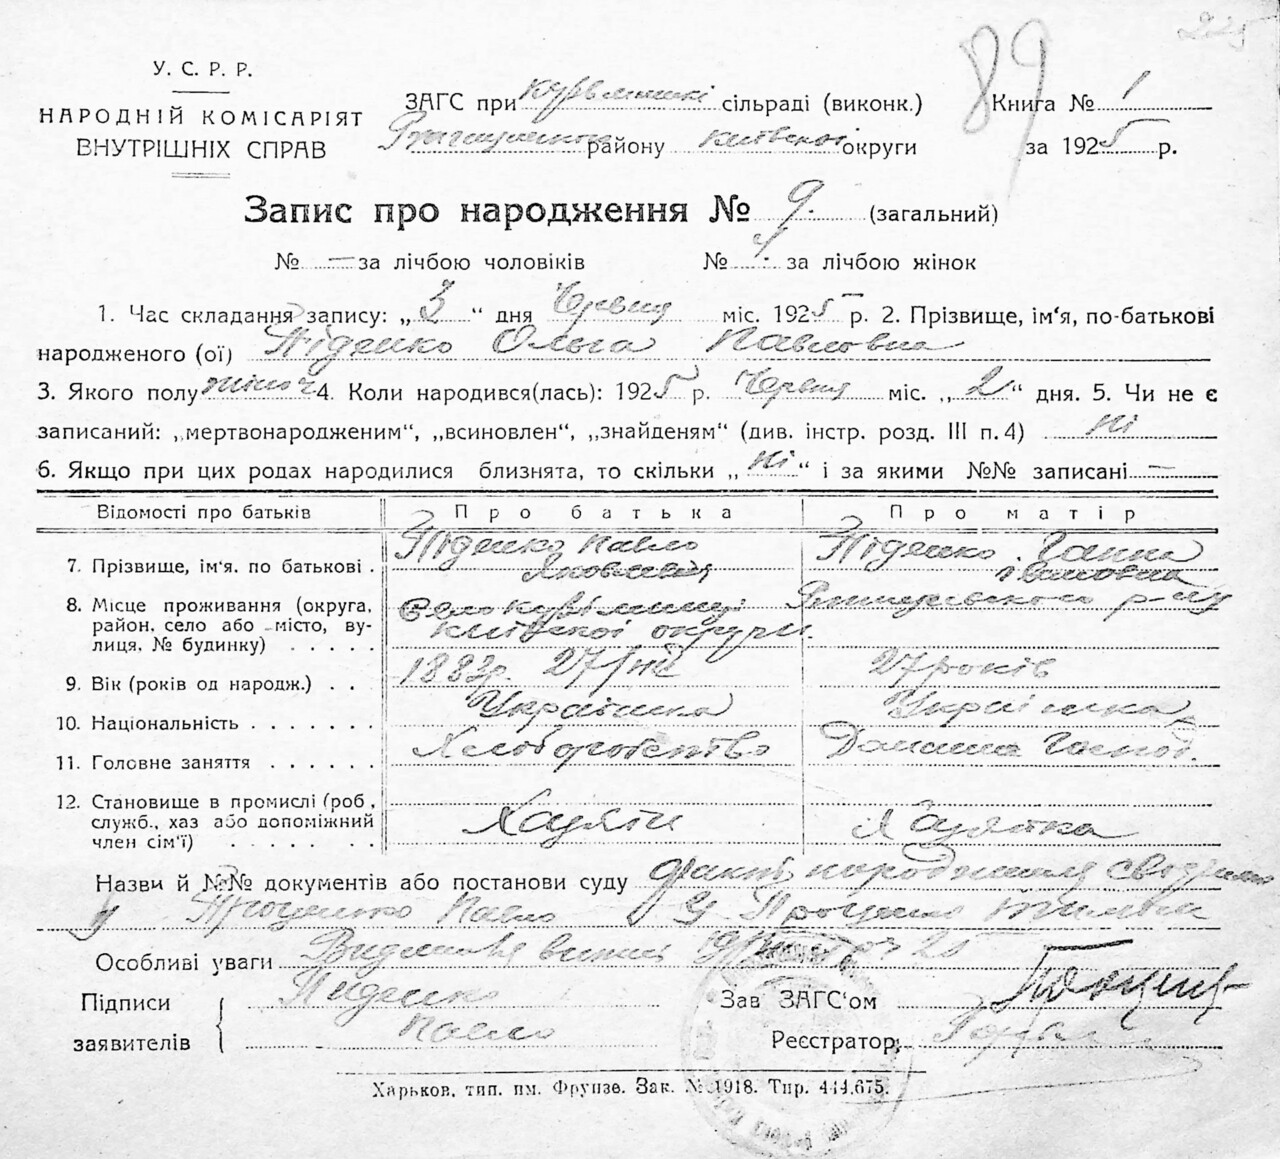 225
89
У. С. Р. Р.
НАРОДНІЙ КОМІСАРІЯТ
ВНУТРІШНІХ СПРАВ
ЗАГС при сільраді (виконк.)
району київскої округи
Книга № 1
за 1925 р.
Запис про народження № 9. (загальний)
№ — за лічбою чоловіків № за лічбою жінок
1. Час складання запису: „ 3 “ дня Червня міс. 1925 р. 2. Прізвище, ім‘я, по-батькові
народженого (ої) Піденко Ольга Павловна
3. Якого полу жіноч 4. Коли народився(лась): 1925 р. Червня міс. „ 2 “ дня. 5. Чи не є
записаний: „мертвонародженим“, „всиновлен“, „знайденям“ (див. інстр. розд. III п. 4) ні
6. Якщо при цих родах народилися близнята, то скільки „ ні “ і за якими №№ записані —
Відомості про батьків Про батька Про матір
7. Прізвище, ім‘я. по батькові . Піденко Павло Яковлевич Піденко Ганна Івановна
8. Місце проживання (округа, район, село або місто, вулиця, № будинку) . . . . . Село київскої округи. р-ну
9. Вік (років од народж.) . . 1883р. 27 років
10. Національність . . . . . . . Українка Українка
11. Головне заняття . . . . . . Хлоборобство Домашнє Господ.
12. Становище в промислі (роб., служб., хаз або допоміжний член сім‘ї) . . . . . . . Хазяїн Хазяйка
Назви й №№ документів або постанови суду факт народження
Проценко Павло Проценко
Особливі уваги
Підписи
заявителів
Піденко
Павло
Зав ЗАГС‘ом
Реєстратор
Харьков, тип. им. Фрунзе. Зак. № 1918. Тир. 444.675.